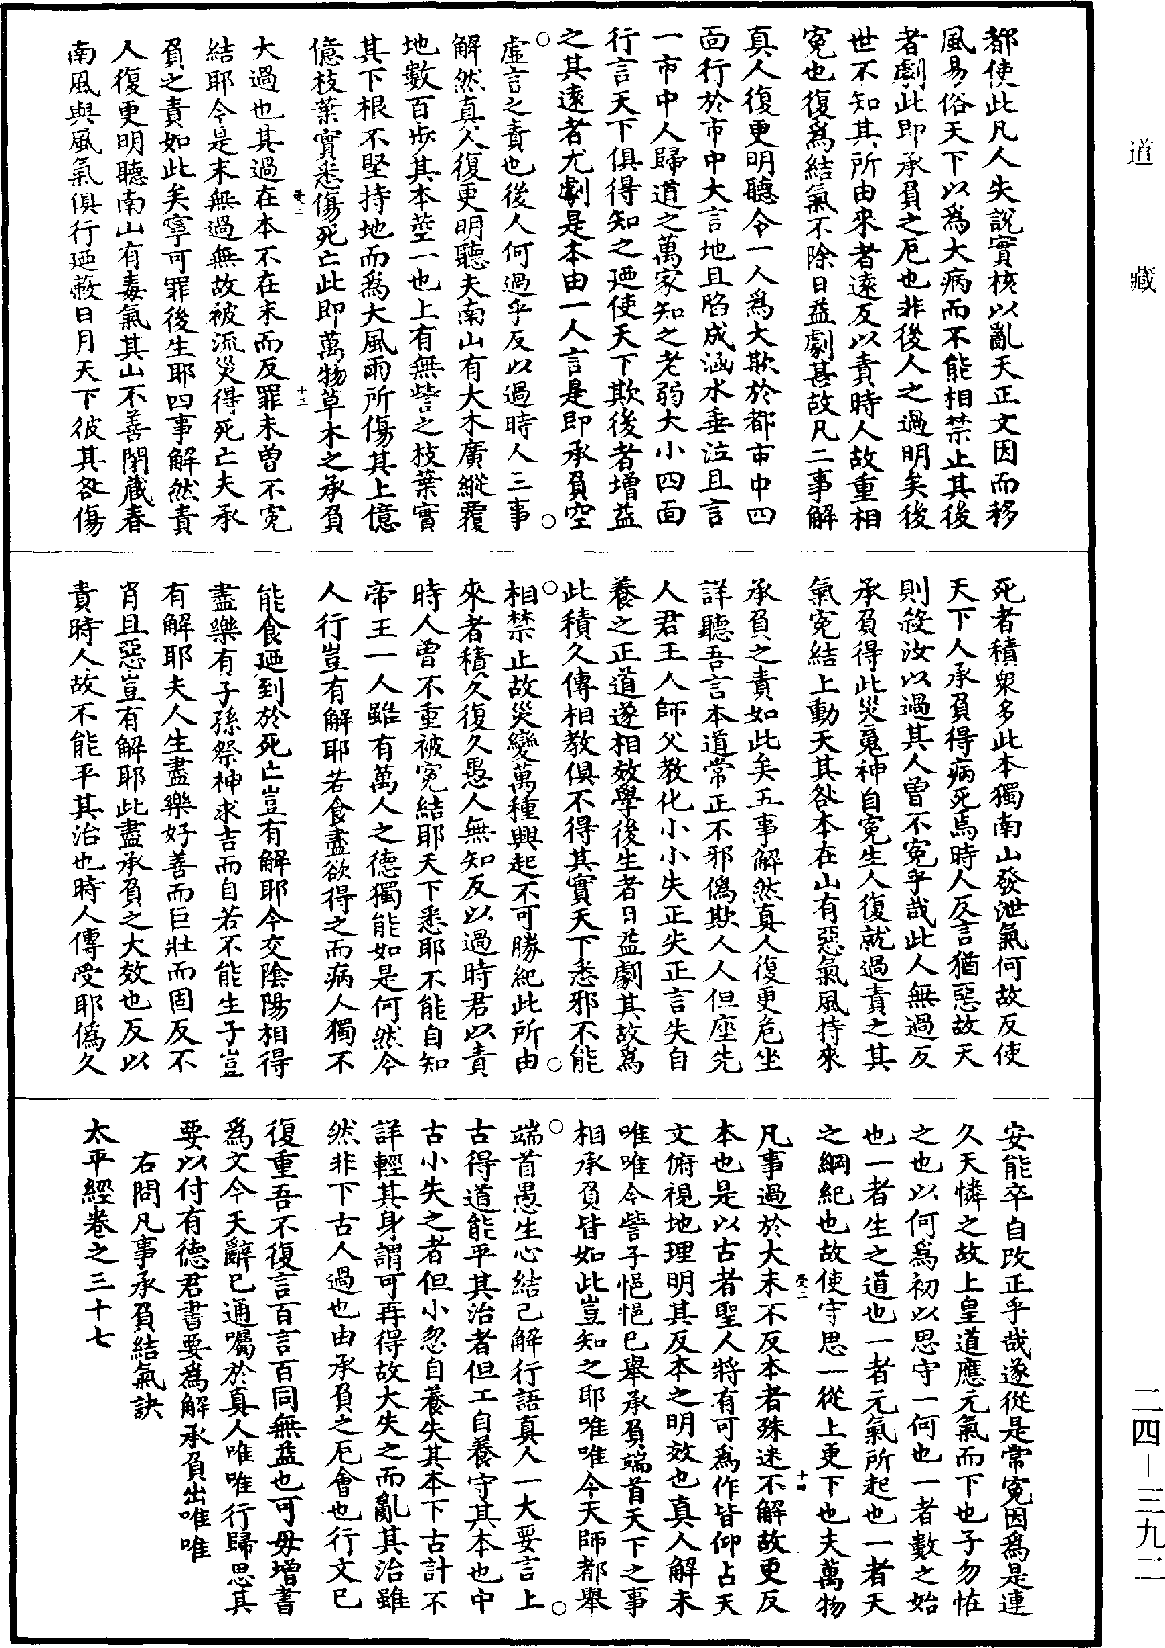 道藏
都使此凡人失說實核以亂天正文因而移
風易俗天下以為大病而不能相禁止其後
者劇此即承負之厄也非後人之過明矣後
世不知其所由來者遠反以責時人故重相
冤也復為結氣不除日益劇甚故凡二事解
真人復更明聽令一人為大欺於都市中四
面行於市中大言地且陷成涵水垂泣且言
一市中人歸道之萬家知之老弱大小四面
行言天下俱得知之廼使天下欺後者增益
之其遠者尤劇是本由一人言是即承負空
虛言之責也後人何過乎反以過時人三事
解然真人復更明聽夫南山有大木廣縱覆
地數百步其本莖一也上有無訾之枝葉實
其下根不堅持地而為大風雨所傷其上億
億枝葉實悉傷死亡此即萬物草木之承負
大過也其過在本不在末而反罪末曾不冤
結耶今是末無過無故被流災得死亡夫承
負之責如此矣寧可罪後生耶四事解然責
人復更明聽南山有毒氣其山不善閉藏春
南風與風氣俱行廼蔽日月天下彼其咎傷
死者積衆多此本獨南山發泄氣何故反使
天下人承負得病死焉時人反言猶惡故天
則殺汝以過其人曾不冤乎哉此人無過反
承負得此災魂神自冤生人復就過責之其
氣冤結上動天其咎本在山有惡氣風持來
承負之責如此矣五事解然真人復更危坐
詳聽吾言本道常正不邪僞欺人人但座先
人君王人師父教化小小失正失正言失自
養之正道遂相效學後生者日益劇其故為
此積久傳相教俱不得其實天下悉邪不能
相禁止故災變萬種興起不可勝紀此所由
來者積久復久愚人無知反以過時君以責
時人曾不重被冤結耶天下悉耶不能自知
帝王一人雖有萬人之德獨能如是何然今
人行豈有解耶若食盡欲得之而病人獨不
能食廼到於死亡豈有解耶今交陰陽相得
盡樂有子孫祭神求吉而自若不能生子豈
有解耶夫人生盡樂好善而巨壯而固反不
肖且惡豈有解耶此盡承負之大效也反以
責時人故不能平其治也時人傳受耶僞久
安能卒自改正乎哉遂從是常冤因為是連
久天憐之故上皇道應元氣而下也子勿恠
之也以何為初以思守一何也一者數之始
也一者生之道也一者元氣所起也一者天
之綱紀也故使守思一從上更下也夫萬物
凡事過於大末不反本者殊迷不解故更反
本也是以古者聖人將有可為作皆仰占天
文俯視地理明其反本之明效也真人解未
唯唯今訾子悒悒已舉承負端首天下之事
相承負皆如此豈知之耶唯唯今天師都舉
端首愚生心結已解行語真人一大要言上
古得道能平其治者但工自養守其本也中
古小失之者但小忽自養失其本下古計不
詳輕其身謂可再得故大失之而亂其治雖
然非下古人過也由承負之厄會也行文已
復重吾不復言百言百同無益也可毋增書
為文今天辭已通囑於真人唯唯行歸思其
要以付有德君書要為解承負出唯唯
右問凡事承負結氣訣
太平經卷之三十七
二四—三九二